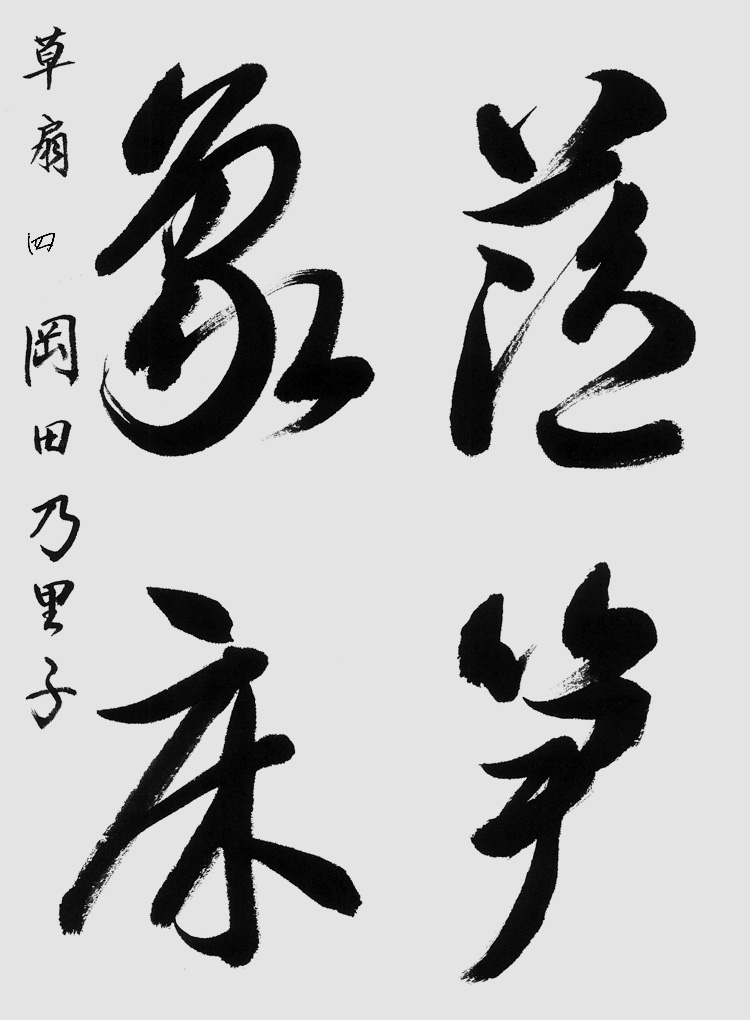 藍笋
象床
草扇 四 岡田乃里子